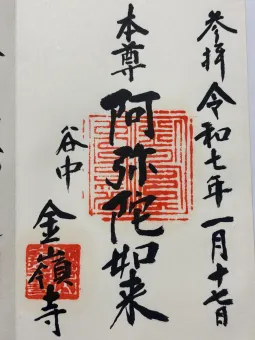 参拝令和七年一月十七日
本尊
阿弥陀如来
谷中
金嶺寺